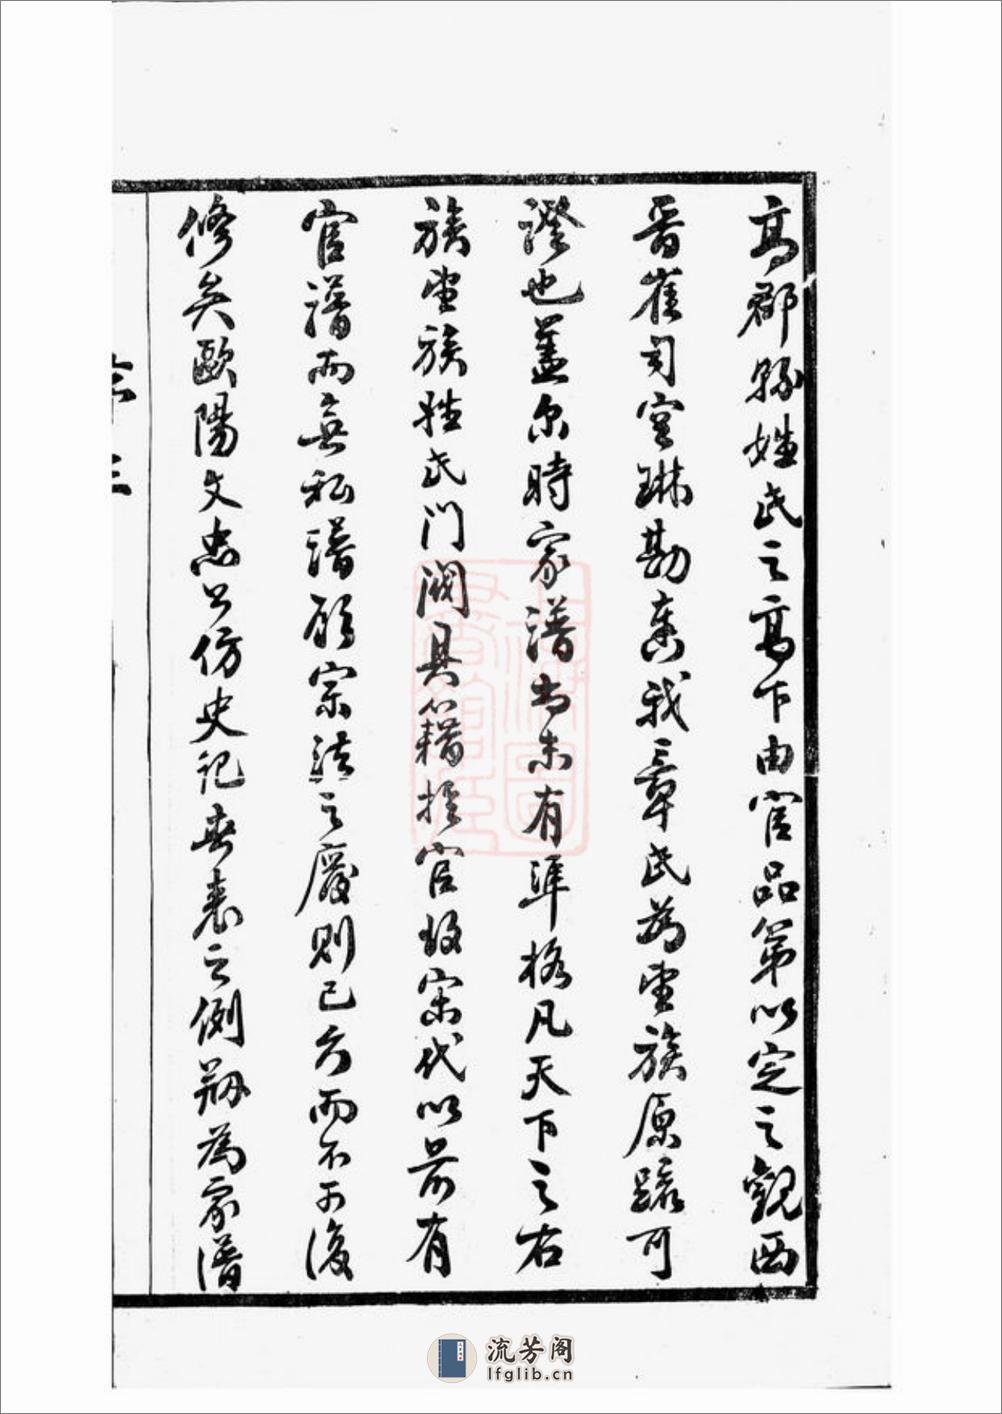 高郡縣姓氏之高下由官品第以定之觀西
晉崔司空琳勘奏我章氏為望族原蹤可
澄也蓋尔時家譜尚未有準格凡天下之右
族望族姓氏門閥具籍於官故宋代以前有
官譜而無私譜顧宗法之廢則已久而不可復
修矣歐陽文忠公仿史記年表之例刱為家譜
流芳阁
lfglib.cn